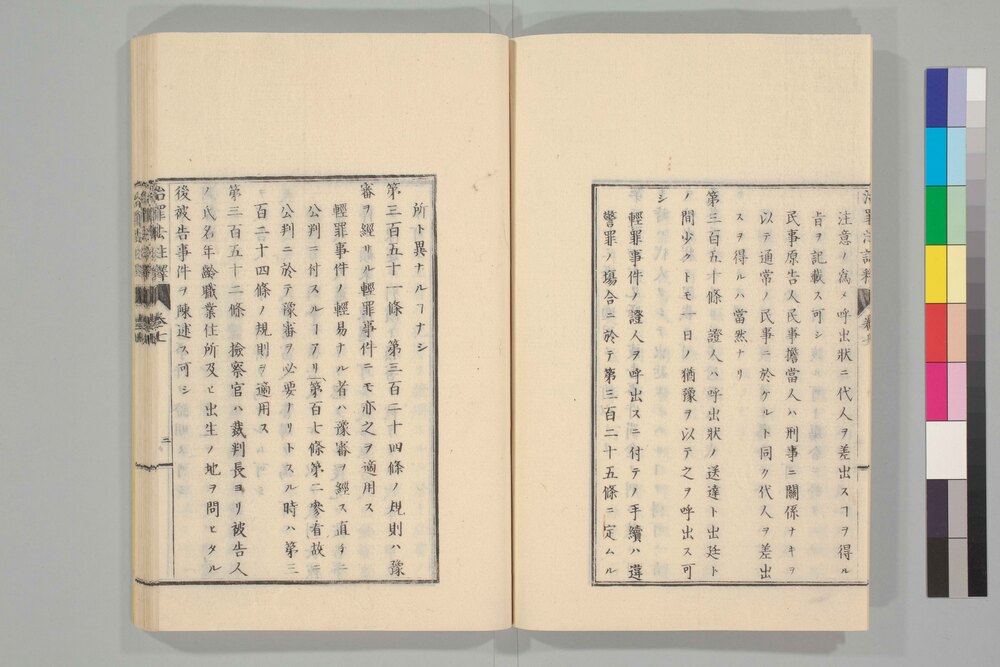 注意ノ爲メ呼出狀ニ代人ヲ差出スヿヲ得ル
旨ヲ記載ス可シ
民事原告人民事擔當人ハ刑事ニ關係ナキヲ
以テ通常ノ民事ニ於ケルト同ク代人ヲ差出
スヲ得ルハ當然ナリ
第三百五十條 證人ハ呼出狀ノ送達ト出廷ト
ノ間少クトモ一日ノ猶豫ヲ以テ之ヲ呼出ス可
シ
輕罪事件ノ證人ヲ呼出スニ付テノ手續ハ違
警罪ノ塲合ニ於テ第三百二十五條ニ定ムル
所ト異ナルヿナシ
第三百五十一條 第三百二十四條ノ規則ハ豫
審ヲ經サル輕罪事件ニモ亦之ヲ適用ス
輕罪事件ノ輕易ナル者ハ豫審ヲ經ス直チニ
公判ニ付スルヿアリ第百七條第二參看故ニ
公判ニ於テ豫審ヲ必要ナリトスル時ハ第三
百二十四條ノ規則ヲ適用ス
第三百五十二條 撿察官ハ裁判長ヨリ被告人
ノ氏名年齡職業住所及ヒ出生ノ地ヲ問ヒタル
後被告事件ヲ陳述ス可シ
治罪法註釋 卷七
二